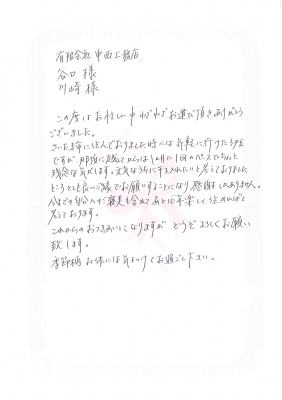 有限会社中西工務店
谷口 様
川崎 様
この度はお忙しい中わざわざお運び頂きありがとう
ございました。
さいたま市に住んでおりました時には気軽に行けた
ですが、那須に越してからは1カ月に1回のペースでちょっと
残念な気がします。元気なうちに手を入れたいと考えておりました
とても良いご縁でお願いすることになり感謝しかありません。
今までの自分へのご褒美も含めてあと10年楽しく住めればと
考えております。
これからのおつきあいになりますが どうぞよろしくお願い
致します。
季節柄お体には気をつけてお過ごし下さい。